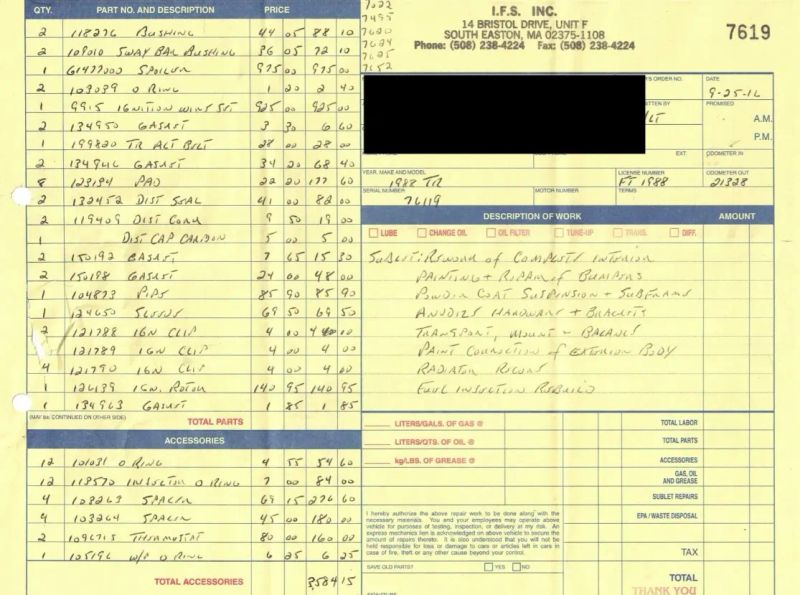 QTY. PART NO. AND DESCRIPTION PRICE
2 118276 BUSHING 44 05 88 10
2 109010 SWAY BAR BUSHING 36 05 72 10
1 61477000 SPOILER 975 00 975 00
2 103039 O RING 1 20 2 40
1 9915 IGNITION WIRE SET 925 00 925 00
2 134950 GASKET 3 30 6 60
1 199820 TR ALT BELT 28 00 28 00
2 134946 GASKET 34 20 68 40
8 123194 PAD 22 20 177 60
2 132452 DIST SEAL 41 00 82 00
2 119409 DIST CONN 9 50 19 00
1 DIST CAP CARBON 5 00 5 00
2 150192 GASKET 7 65 15 30
2 150188 GASKET 24 00 48 00
1 104873 PIPE 85 90 85 90
1 124650 69 50 69 50
2 121788 IGN CLIP 4 00
1 121789 IGN CLIP 4 00 4 00
4 121790 IGN CLIP 4 00 4 00
1 126139 IGN. ROTOR 140 95 140 95
1 134963 GASKET 1 85 1 85
(MAY BE CONTINUED ON OTHER SIDE) TOTAL PARTS
ACCESSORIES
12 101031 O RING 4 55 54 60
12 118570 INJECTOR O RING 7 00 84 00
4 108263 SPACER 69 15 276 60
4 103264 SPACER 45 00 180 00
2 109675 THERMOSTAT 80 00 160 00
1 105196 W/P O RING 6 25 6 25
TOTAL ACCESSORIES 3584 15
7622
7495
7620
7624
7625
7652
I.F.S. INC.
14 BRISTOL DRIVE, UNIT F
SOUTH EASTON, MA 02375-1108
Phone: (508) 238-4224 Fax: (508) 238-4224
7619
'S ORDER NO. DATE
9-25-12
ITTEN BY PROMISED
A.M.
P.M.
EXT. ODOMETER IN
YEAR, MAKE AND MODEL LICENSE NUMBER ODOMETER OUT
1988 TR FT 1988 21328
SERIAL NUMBER MOTOR NUMBER TERMS
76119
DESCRIPTION OF WORK AMOUNT
LUBE CHANGE OIL OIL FILTER TUNE-UP TRANS. DIFF.
SUBLET: REWORK of COMPLETE INTERIOR
PAINTING + REPAIR of BUMPERS
POWDER COAT SUSPENSION + SUBFRAME
ANODIZE HARDWARE + BRACKETS
TRANSPORT, MOUNT + BALANCE
PAINT CORRECTION of EXTERIOR BODY
RADIATOR RECORE
FUEL INJECTION REBUILD
LITERS/GALS. OF GAS @ TOTAL LABOR
LITERS/QTS. OF OIL @ TOTAL PARTS
kg/LBS. OF GREASE @ ACCESSORIES
GAS, OIL
AND GREASE
SUBLET REPAIRS
EPA / WASTE DISPOSAL
TAX
TOTAL
THANK YOU
I hereby authorize the above repair work to be done along with the
necessary materials. You and your employees may operate above
vehicle for purposes of testing, inspection, or delivery at my risk. An
express mechanics lien is acknowledged on above vehicle to secure the
amount of repairs thereto. It is also understood that you will not be
held responsible for loss or damage to cars or articles left in cars in
case of fire, theft or any other cause beyond your control.
SAVE OLD PARTS? YES NO
SIGNATURE